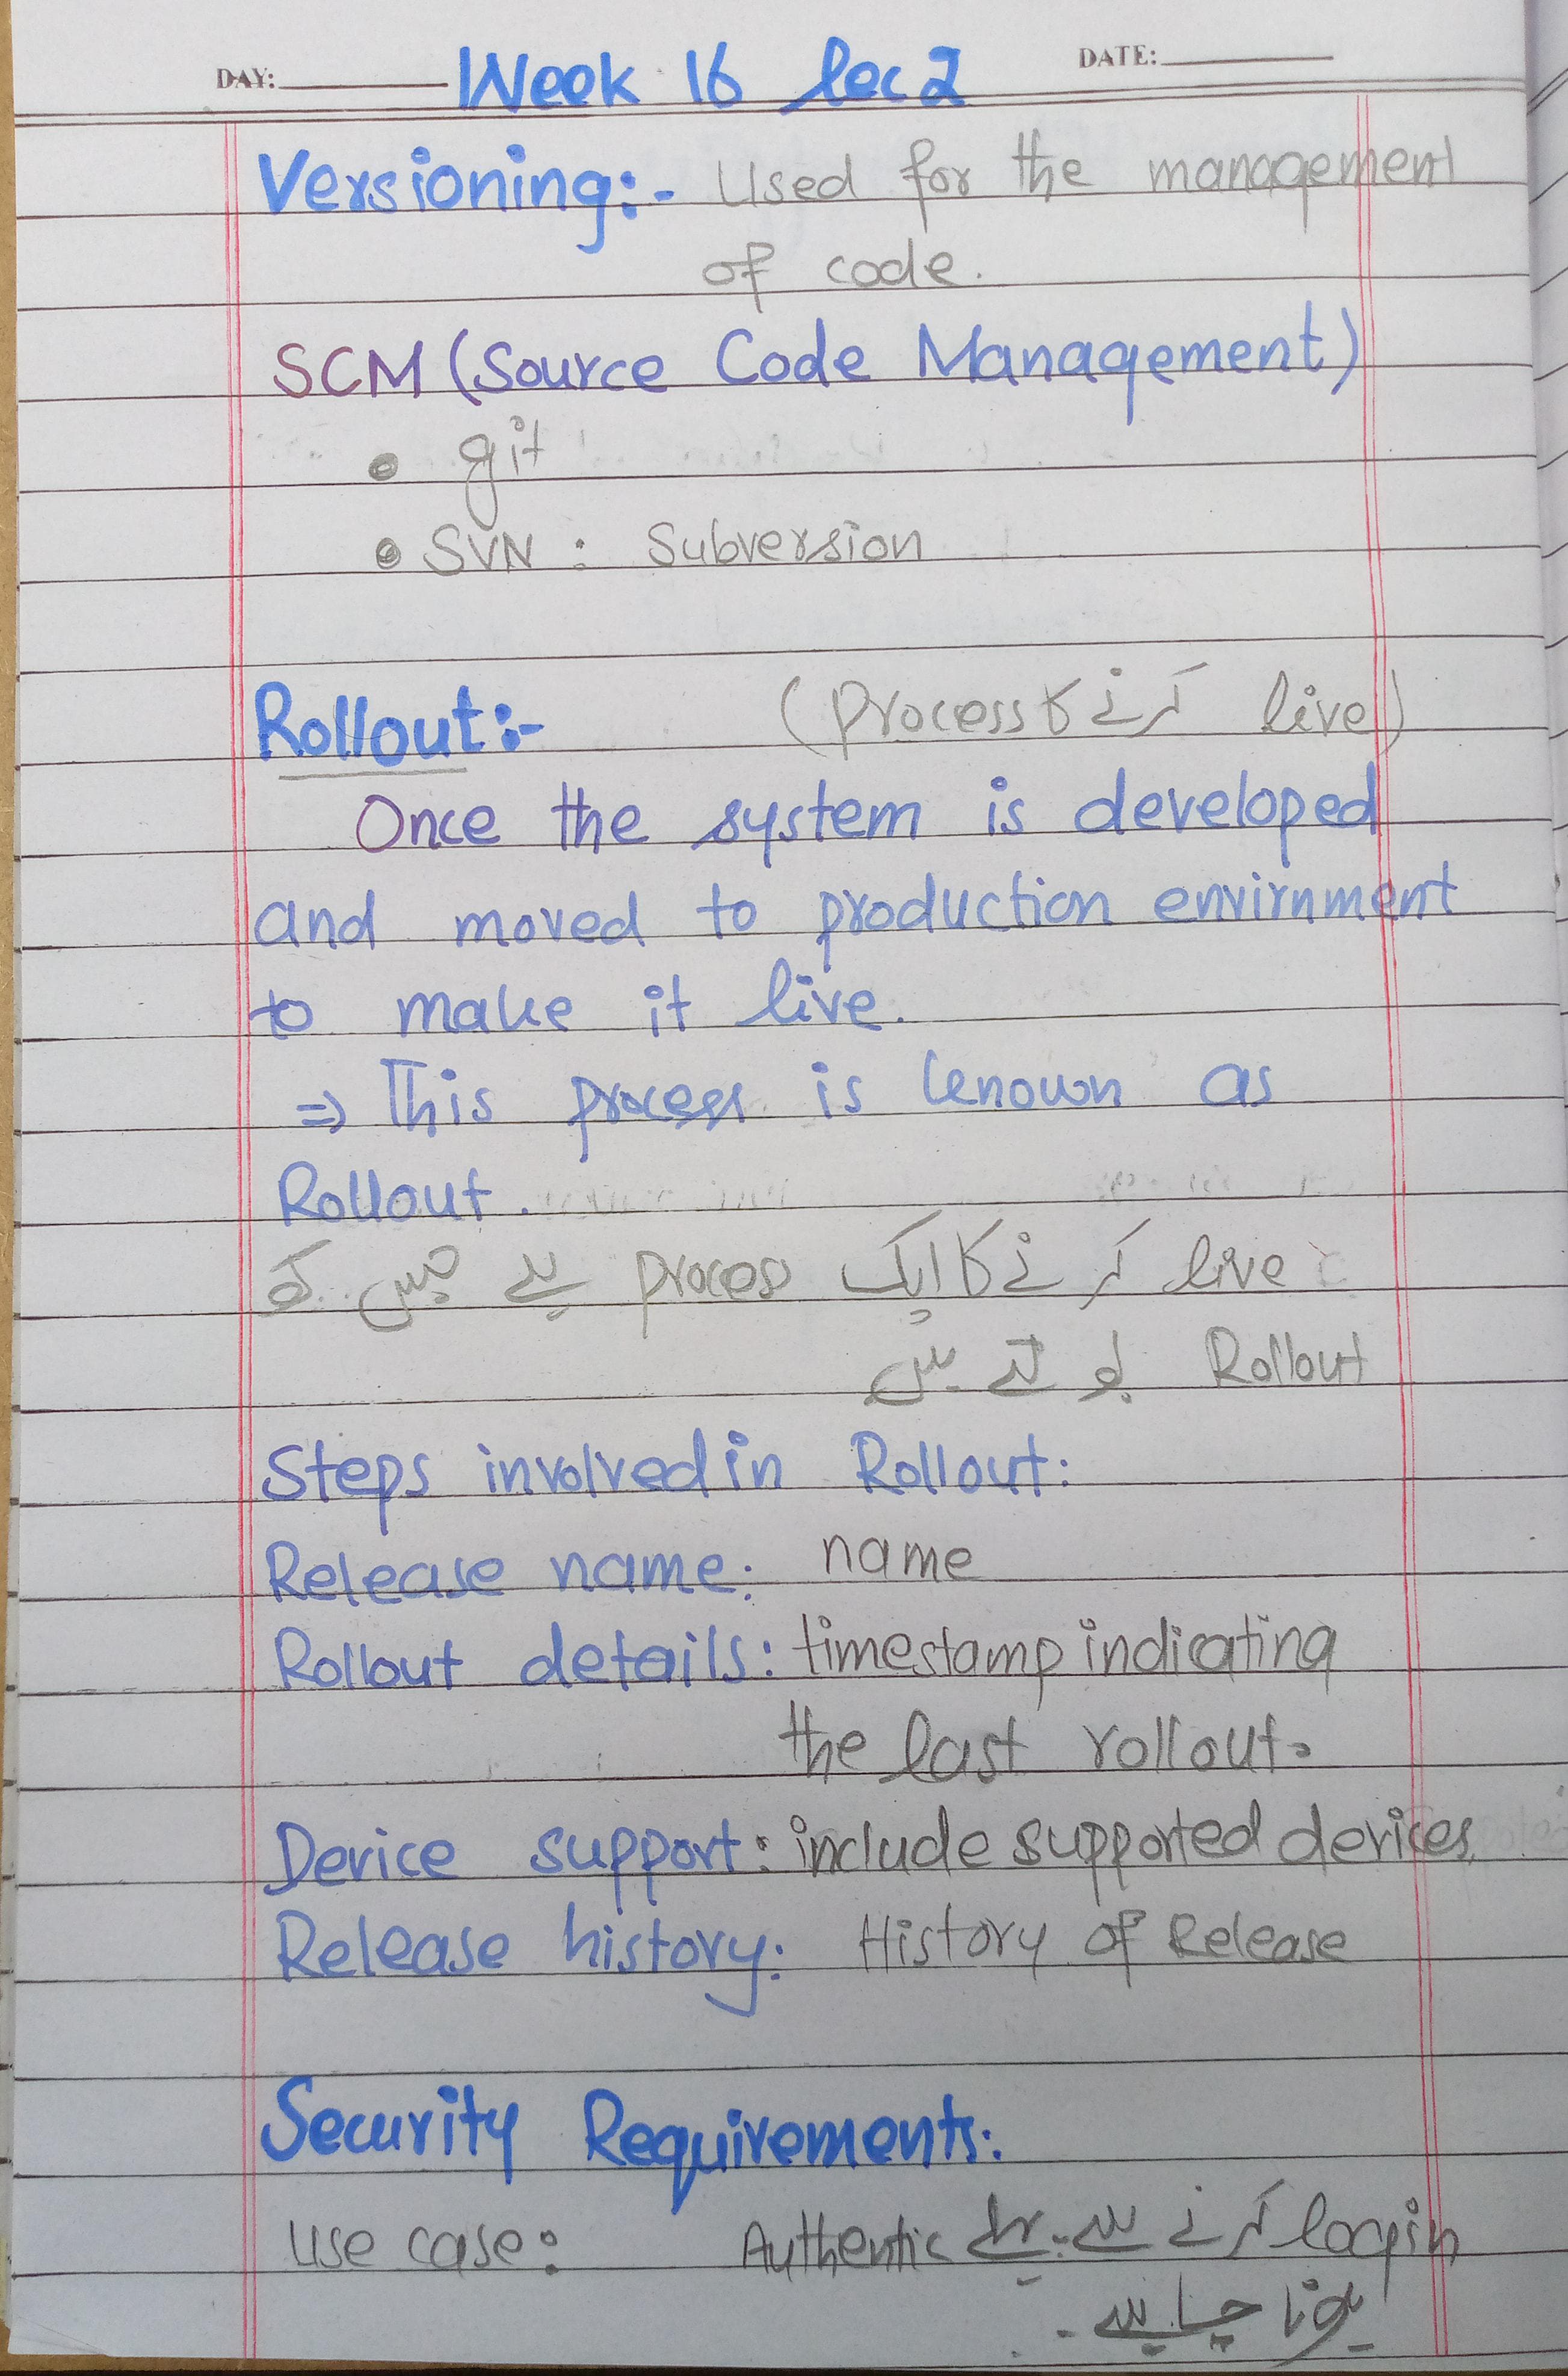 DAY: Week 16 lec 2 DATE:
Versioning:- Used for the management
of code.
SCM (Source Code Management)
• git
• SVN : Subversion
Rollout:- (live کرنے کا process)
Once the system is developed
and moved to production envirnment
to make it live.
⇒ This process is known as
Rollout.
live کرنے کا ایک process ہے جس کو
Rollout بولتے ہیں
Steps involved in Rollout:
Release name: name
Rollout details: timestamp indicating
the last rollout.
Device support: include supported devices
Release history: History of Release
Security Requirements:
use case: login کرنے سے پہلے Authentic
ہونا چاہیے۔